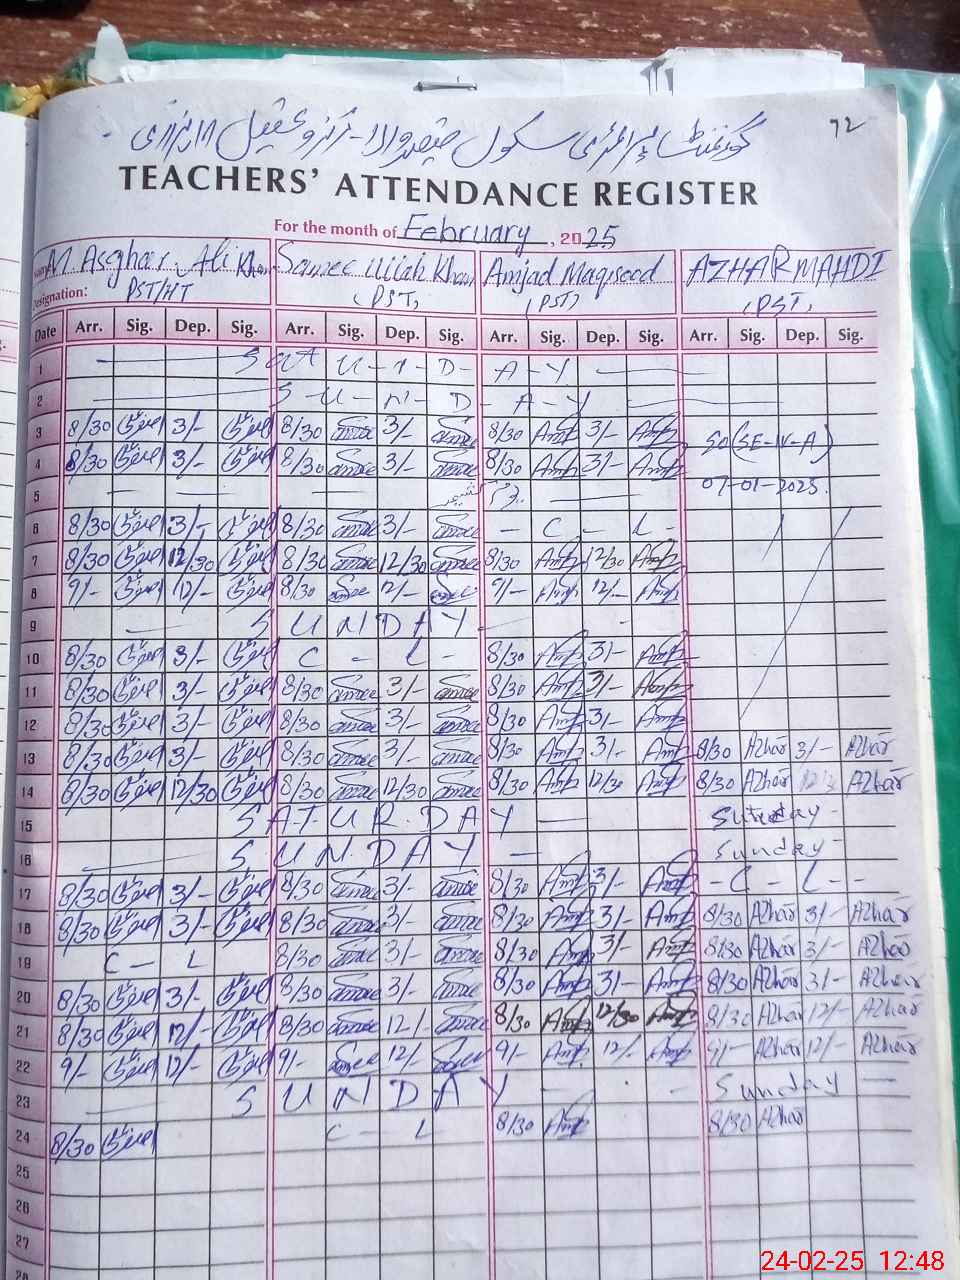 72
گورنمنٹ پرائمری سکول
TEACHERS' ATTENDANCE REGISTER
For the month of February, 2025
M. Asghar Ali Khan Samee Ullah Khan Amjad Maqsood AZHAR MAHDI
Designation: PST/HT (PST) (PST) (PST)
Date Arr. Sig. Dep. Sig. Arr. Sig. Dep. Sig. Arr. Sig. Dep. Sig. Arr. Sig. Dep. Sig.
1 S A T U R D A Y
2 S U N D A Y
3 8/30 3/- 8/30 Samee 3/- Samee 8/30 Amj 3/- Amj SO(SE-IV-A)
4 8/30 3/- 8/30 Samee 3/- Samee 8/30 Amj 3/- Amj
5 یوم کشمیر 07-01-2025.
6 8/30 3/- 3/- 8/30 Samee 3/- Samee C - L -
7 8/30 12/30 8/30 Samee 12/30 Samee 8/30 Amj 12/30 Amj
8 9/- 12/- 8/30 Samee 12/- Samee 9/- Amj 12/- Amj
9 S U N D A Y
10 8/30 3/- C - L - 8/30 Amj 3/- Amj
11 8/30 3/- 8/30 Samee 3/- Samee 8/30 Amj 3/- Amj
12 8/30 3/- 8/30 Samee 3/- Samee 8/30 Amj 3/- Amj
13 8/30 3/- 8/30 Samee 3/- Samee 8/30 Amj 3/- Amj 8/30 Azhar 3/- Azhar
14 8/30 12/30 8/30 Samee 12/30 Samee 8/30 Amj 12/30 Amj 8/30 Azhar Azhar
15 S A T U R D A Y
16 S U N D A Y Sunday
17 8/30 3/- 8/30 Samee 3/- Samee 8/30 Amj 3/- Amj - C - L -
18 8/30 3/- 8/30 Samee 3/- Samee 8/30 Amj 3/- Amj 8/30 Azhar 3/- Azhar
19 C - L 8/30 Samee 3/- Samee 8/30 Amj 3/- Amj 8/30 Azhar 3/- Azhar
20 8/30 3/- 8/30 Samee 3/- Samee 8/30 Amj 3/- Amj 8/30 Azhar 3/- Azhar
21 8/30 12/- 8/30 Samee 12/- Samee 8/30 Amj 12/30 Amj 8/30 Azhar 12/- Azhar
22 9/- 12/- 9/- Samee 12/- Samee 9/- Amj 12/- Amj 9/- Azhar 12/- Azhar
23 S U N D A Y Sunday
24 8/30 C - L 8/30 Amj 8/30 Azhar
25
26
27
24-02-25 12:48